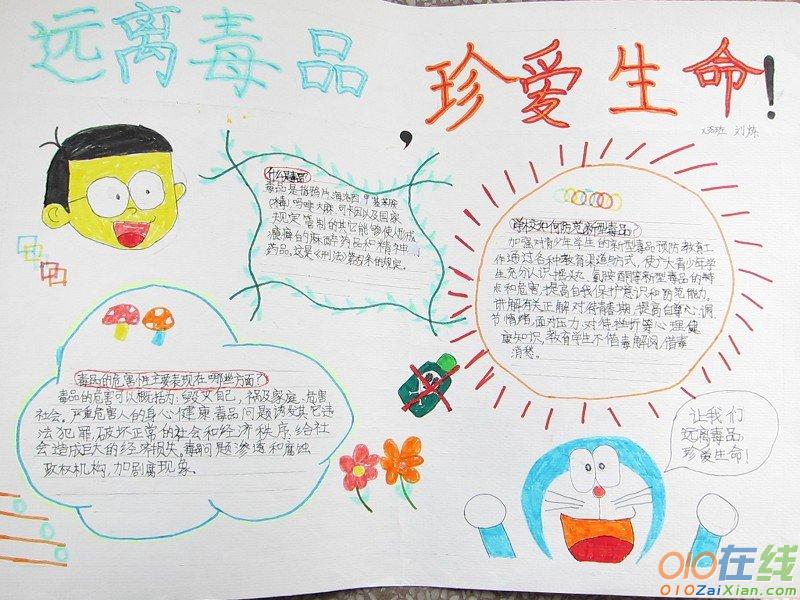 远离毒品，珍爱生命！
刘炼
什么是毒品
毒品是指鸦片,海洛因,甲基苯丙
(精)吗啡大麻,可卡因以及国家
规定管制的其它能够使人形成
瘾癖的麻醉药品和精神
药品。这是《刑法》第 条的规定。
学校如何防范新型毒品?
加强对青少年学生的新型毒品预防教育工
作通过各种教育渠道与方式，使广大青少年学
生充分认识摇头丸、氯胺酮等新型毒品的特
点和危害,提高自我保护意识和防范能力。
讲解有关正解对待青春期,提高自尊心,调
节情绪,面对压力,对待挫折等心理健
康知识,教育学生不借毒解闷,借毒
消愁。
毒品的危害性主要表现在哪些方面?
毒品的危害可以概括为:毁灭自己，祸及家庭、危害
社会。严重危害人的身心健康毒品问题诱发其它违
法犯罪,破坏正常的社会和经济秩序,给社
会造成巨大的经济损失。毒品问题渗透和腐蚀
政权机构,加剧腐现象。
让我们
远离毒品
珍爱生命!
010在线
010ZaiXian.com